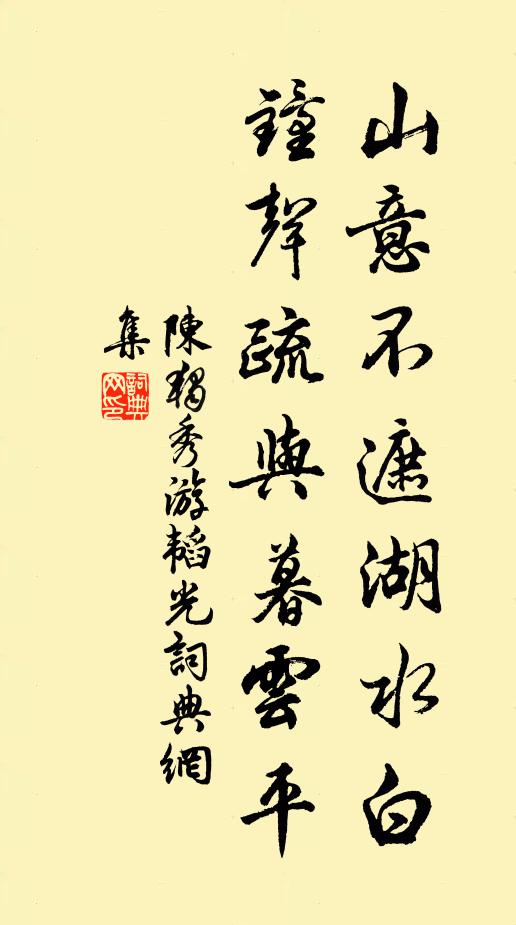 山意不遮湖水白
鐘聲疏與暮雲平
陳獨秀游韜光詞典網
集
詞典
网印